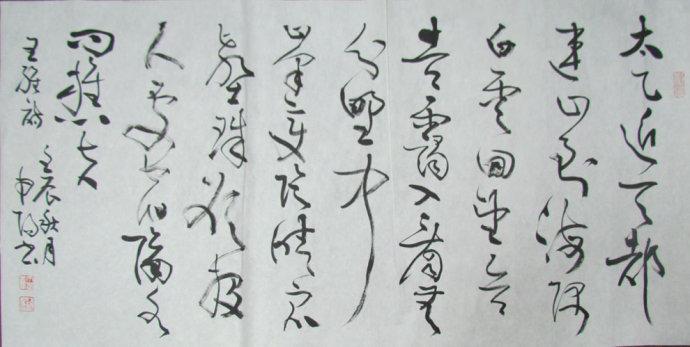 太乙近天都
連山到海隅
白雲回望合
青靄入看無
分野中
峯變陰晴衆
壑殊欲投
人處宿隔水
問樵夫
王維詩
壬辰秋月
申 書